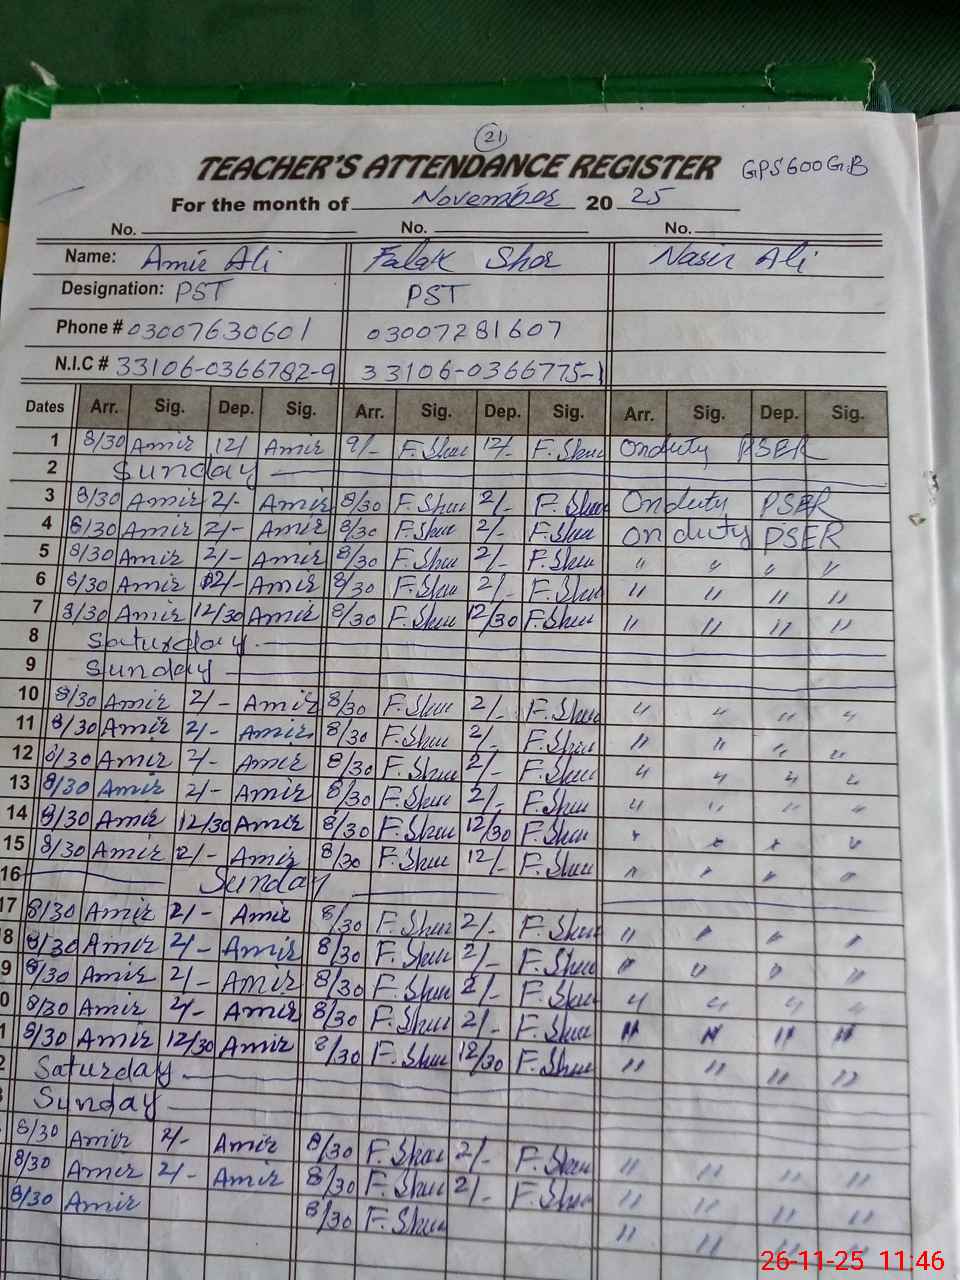 21
TEACHER'S ATTENDANCE REGISTER GPS600GB
For the month of November 20 25
No. No. No.
Name: Amir Ali Falak Sher Nasir Ali
Designation: PST PST
Phone # 03007630601 03007281607
N.I.C # 33106-0366782-9 33106-0366775-1
Dates Arr. Sig. Dep. Sig. Arr. Sig. Dep. Sig. Arr. Sig. Dep. Sig.
1 8/30 Amir 12/ Amir 9/- F.Sher 12/- F.Sher Onduty PSER
2 Sunday
3 8/30 Amir 2/- Amir 8/30 F.Sher 2/- F.Sher Onduty PSER
4 8/30 Amir 2/- Amir 8/30 F.Sher 2/- F.Sher On duty PSER
5 8/30 Amir 2/- Amir 8/30 F.Sher 2/- F.Sher " " " "
6 8/30 Amir 2/- Amir 8/30 F.Sher 2/- F.Sher " " " "
7 8/30 Amir 12/30 Amir 8/30 F.Sher 12/30 F.Sher " " " "
8 Saturday
9 Sunday
10 8/30 Amir 2/- Amir 8/30 F.Sher 2/- F.Sher " " " "
11 8/30 Amir 2/- Amir 8/30 F.Sher 2/- F.Sher " " " "
12 8/30 Amir 2/- Amir 8/30 F.Sher 2/- F.Sher " " " "
13 8/30 Amir 2/- Amir 8/30 F.Sher 2/- F.Sher " " " "
14 8/30 Amir 12/30 Amir 8/30 F.Sher 12/30 F.Sher " " " "
15 8/30 Amir 12/- Amir 8/30 F.Sher 12/- F.Sher " " " "
16 Sunday
17 8/30 Amir 2/- Amir 8/30 F.Sher 2/- F.Sher " " " "
18 8/30 Amir 2/- Amir 8/30 F.Sher 2/- F.Sher " " " "
9 8/30 Amir 2/- Amir 8/30 F.Sher 2/- F.Sher " " " "
0 8/30 Amir 2/- Amir 8/30 F.Sher 2/- F.Sher " " " "
1 8/30 Amir 12/30 Amir 8/30 F.Sher 12/30 F.Sher " " " "
2 Saturday
3 Sunday
8/30 Amir 2/- Amir 8/30 F.Sher 2/- F.Sher " " " "
8/30 Amir 2/- Amir 8/30 F.Sher 2/- F.Sher " " " "
8/30 Amir 8/30 F.Sher " " " "
26-11-25 11:46